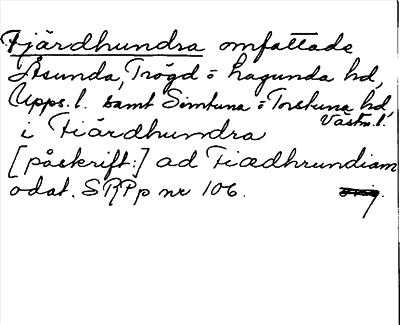 Fjärdhundra omfattade
Åsunda, Trögd o Lagunda hd,
Upps. l. samt Simtuna o Torstuna hd,
Västm. l.
i Fiärdhundra
[påskrift:] ad Fiædhrundiam
odat. SRPp nr 106.
orig.